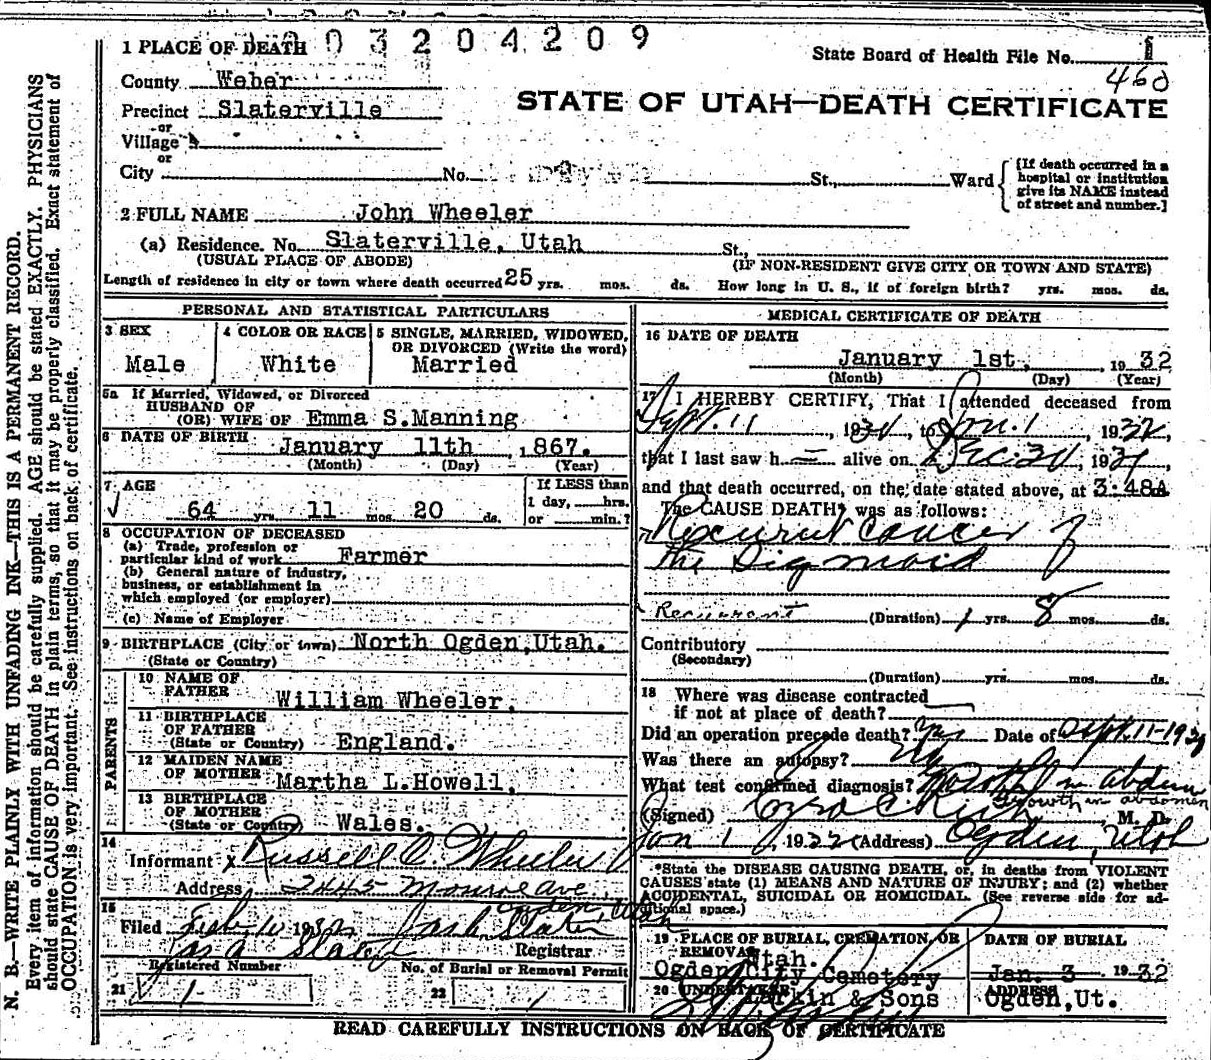 003204209
1 PLACE OF DEATH
State Board of Health File No. 1
460
County Weber
STATE OF UTAH—DEATH CERTIFICATE
Precinct Slaterville
or
Village
or
City No. St., Ward
[If death occurred in a
hospital or institution
give its NAME instead
of street and number.]
2 FULL NAME John Wheeler
(a) Residence. No. Slaterville, Utah St.,
(USUAL PLACE OF ABODE) (IF NON-RESIDENT GIVE CITY OR TOWN AND STATE)
Length of residence in city or town where death occurred 25 yrs. mos. ds. How long in U. S., if of foreign birth? yrs. mos. ds.
PERSONAL AND STATISTICAL PARTICULARS
3 SEX
Male
4 COLOR OR RACE
White
5 SINGLE, MARRIED, WIDOWED,
OR DIVORCED (Write the word)
Married
5a If Married, Widowed, or Divorced
HUSBAND OF
(OR) WIFE OF Emma S.Manning
6 DATE OF BIRTH January 11th , 1867.
(Month) (Day) (Year)
7 AGE
64 yrs. 11 mos. 20 ds.
If LESS than
1 day, hrs.
or min.?
8 OCCUPATION OF DECEASED
(a) Trade, profession or
particular kind of work Farmer
(b) General nature of industry,
business, or establishment in
which employed (or employer)
(c) Name of Employer
9 BIRTHPLACE (City or town) North Ogden,Utah.
(State or Country)
PARENTS
10 NAME OF
FATHER William Wheeler.
11 BIRTHPLACE
OF FATHER
(State or Country) England.
12 MAIDEN NAME
OF MOTHER Martha L.Howell
13 BIRTHPLACE
OF MOTHER
(State or Country) Wales.
14
Informant x Russell O Wheeler
Address 2445 Monroe ave
Ogden, Utah
15
Filed 1932 Jas A. Slater
Jas A Slater Registrar
Registered Number
21 1
No. of Burial or Removal Permit
22 1
MEDICAL CERTIFICATE OF DEATH
16 DATE OF DEATH
January 1st, 1932
(Month) (Day) (Year)
17 I HEREBY CERTIFY, That I attended deceased from
Sept. 11, 1931, to Jan. 1, 1932,
that I last saw h alive on Dec. 30, 1931,
and that death occurred, on the date stated above, at 3:48A
The CAUSE DEATH was as follows:
Recurent Cancer of
the Sigmoid
Recurrent (Duration) 1 yrs. 8 mos. ds.
Contributory
(Secondary)
(Duration) yrs. mos. ds.
18 Where was disease contracted
if not at place of death?
Did an operation precede death? Yes Date of Sept. 11-1930
Was there an autopsy? No
What test confirmed diagnosis? Growth in abdomen
Growth in abdomen
(Signed) Ezra C. Rich, M. D.
Jan 1, 1932 (Address) Ogden, Utah
*State the DISEASE CAUSING DEATH, or, in deaths from VIOLENT
CAUSES state (1) MEANS AND NATURE OF INJURY; and (2) whether
ACCIDENTAL, SUICIDAL OR HOMICIDAL. (See reverse side for ad-
ditional space.)
19 PLACE OF BURIAL, CREMATION, OR
REMOVAL Utah.
Ogden City Cemetery
DATE OF BURIAL
Jan. 3 1932
20 UNDERTAKER
Larkin & Sons
ADDRESS
Ogden,Ut.
READ CAREFULLY INSTRUCTIONS ON BACK OF CERTIFICATE
N. B.—WRITE PLAINLY WITH UNFADING INK—THIS IS A PERMANENT RECORD.
Every item of information should be carefully supplied. AGE should be stated EXACTLY. PHYSICIANS
should state CAUSE OF DEATH in plain terms, so that it may be properly classified. Exact statement of
OCCUPATION is very important. See instructions on back of certificate.